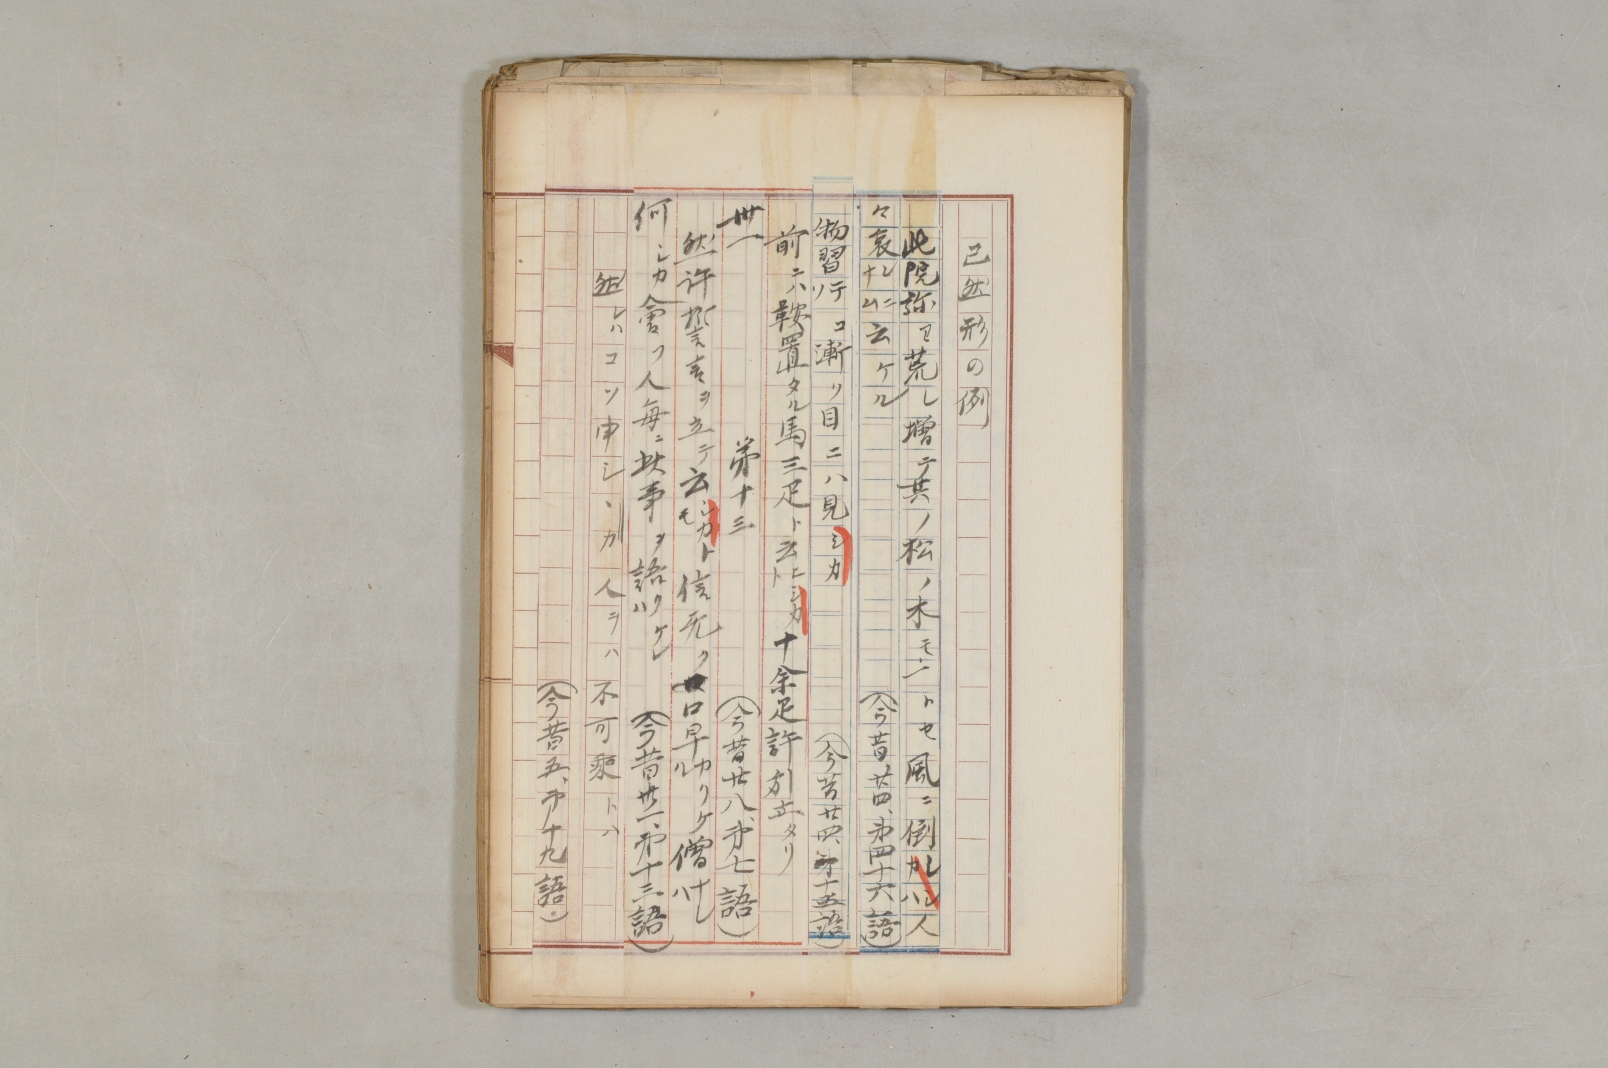 已然形の例
此院弥ヨ荒レ増テ其ノ松ノ木モ一トセ風ニ倒カレシハ人
々哀ナムレニ云ケル
（今昔廿四、第四十六語）
物習ソ行テコ漸リ目ニハ見シカ
（今昔廿四、第十五語）
前ニハ鞍置タル馬三疋ト云ニトシカ十余疋許引立タリ
（今昔廿八、第七語）
卅一　第十三
然許誓言ヲ立テ云シカトモ信无ク口早カリケル僧ナレハ
何シカ會フ人毎ニ此事ヲ語リケレハ
（今昔卅一、第十三語）
然レハコソ申シヽカ人ヲハ不可乗トハ
（今昔五、第十九語）